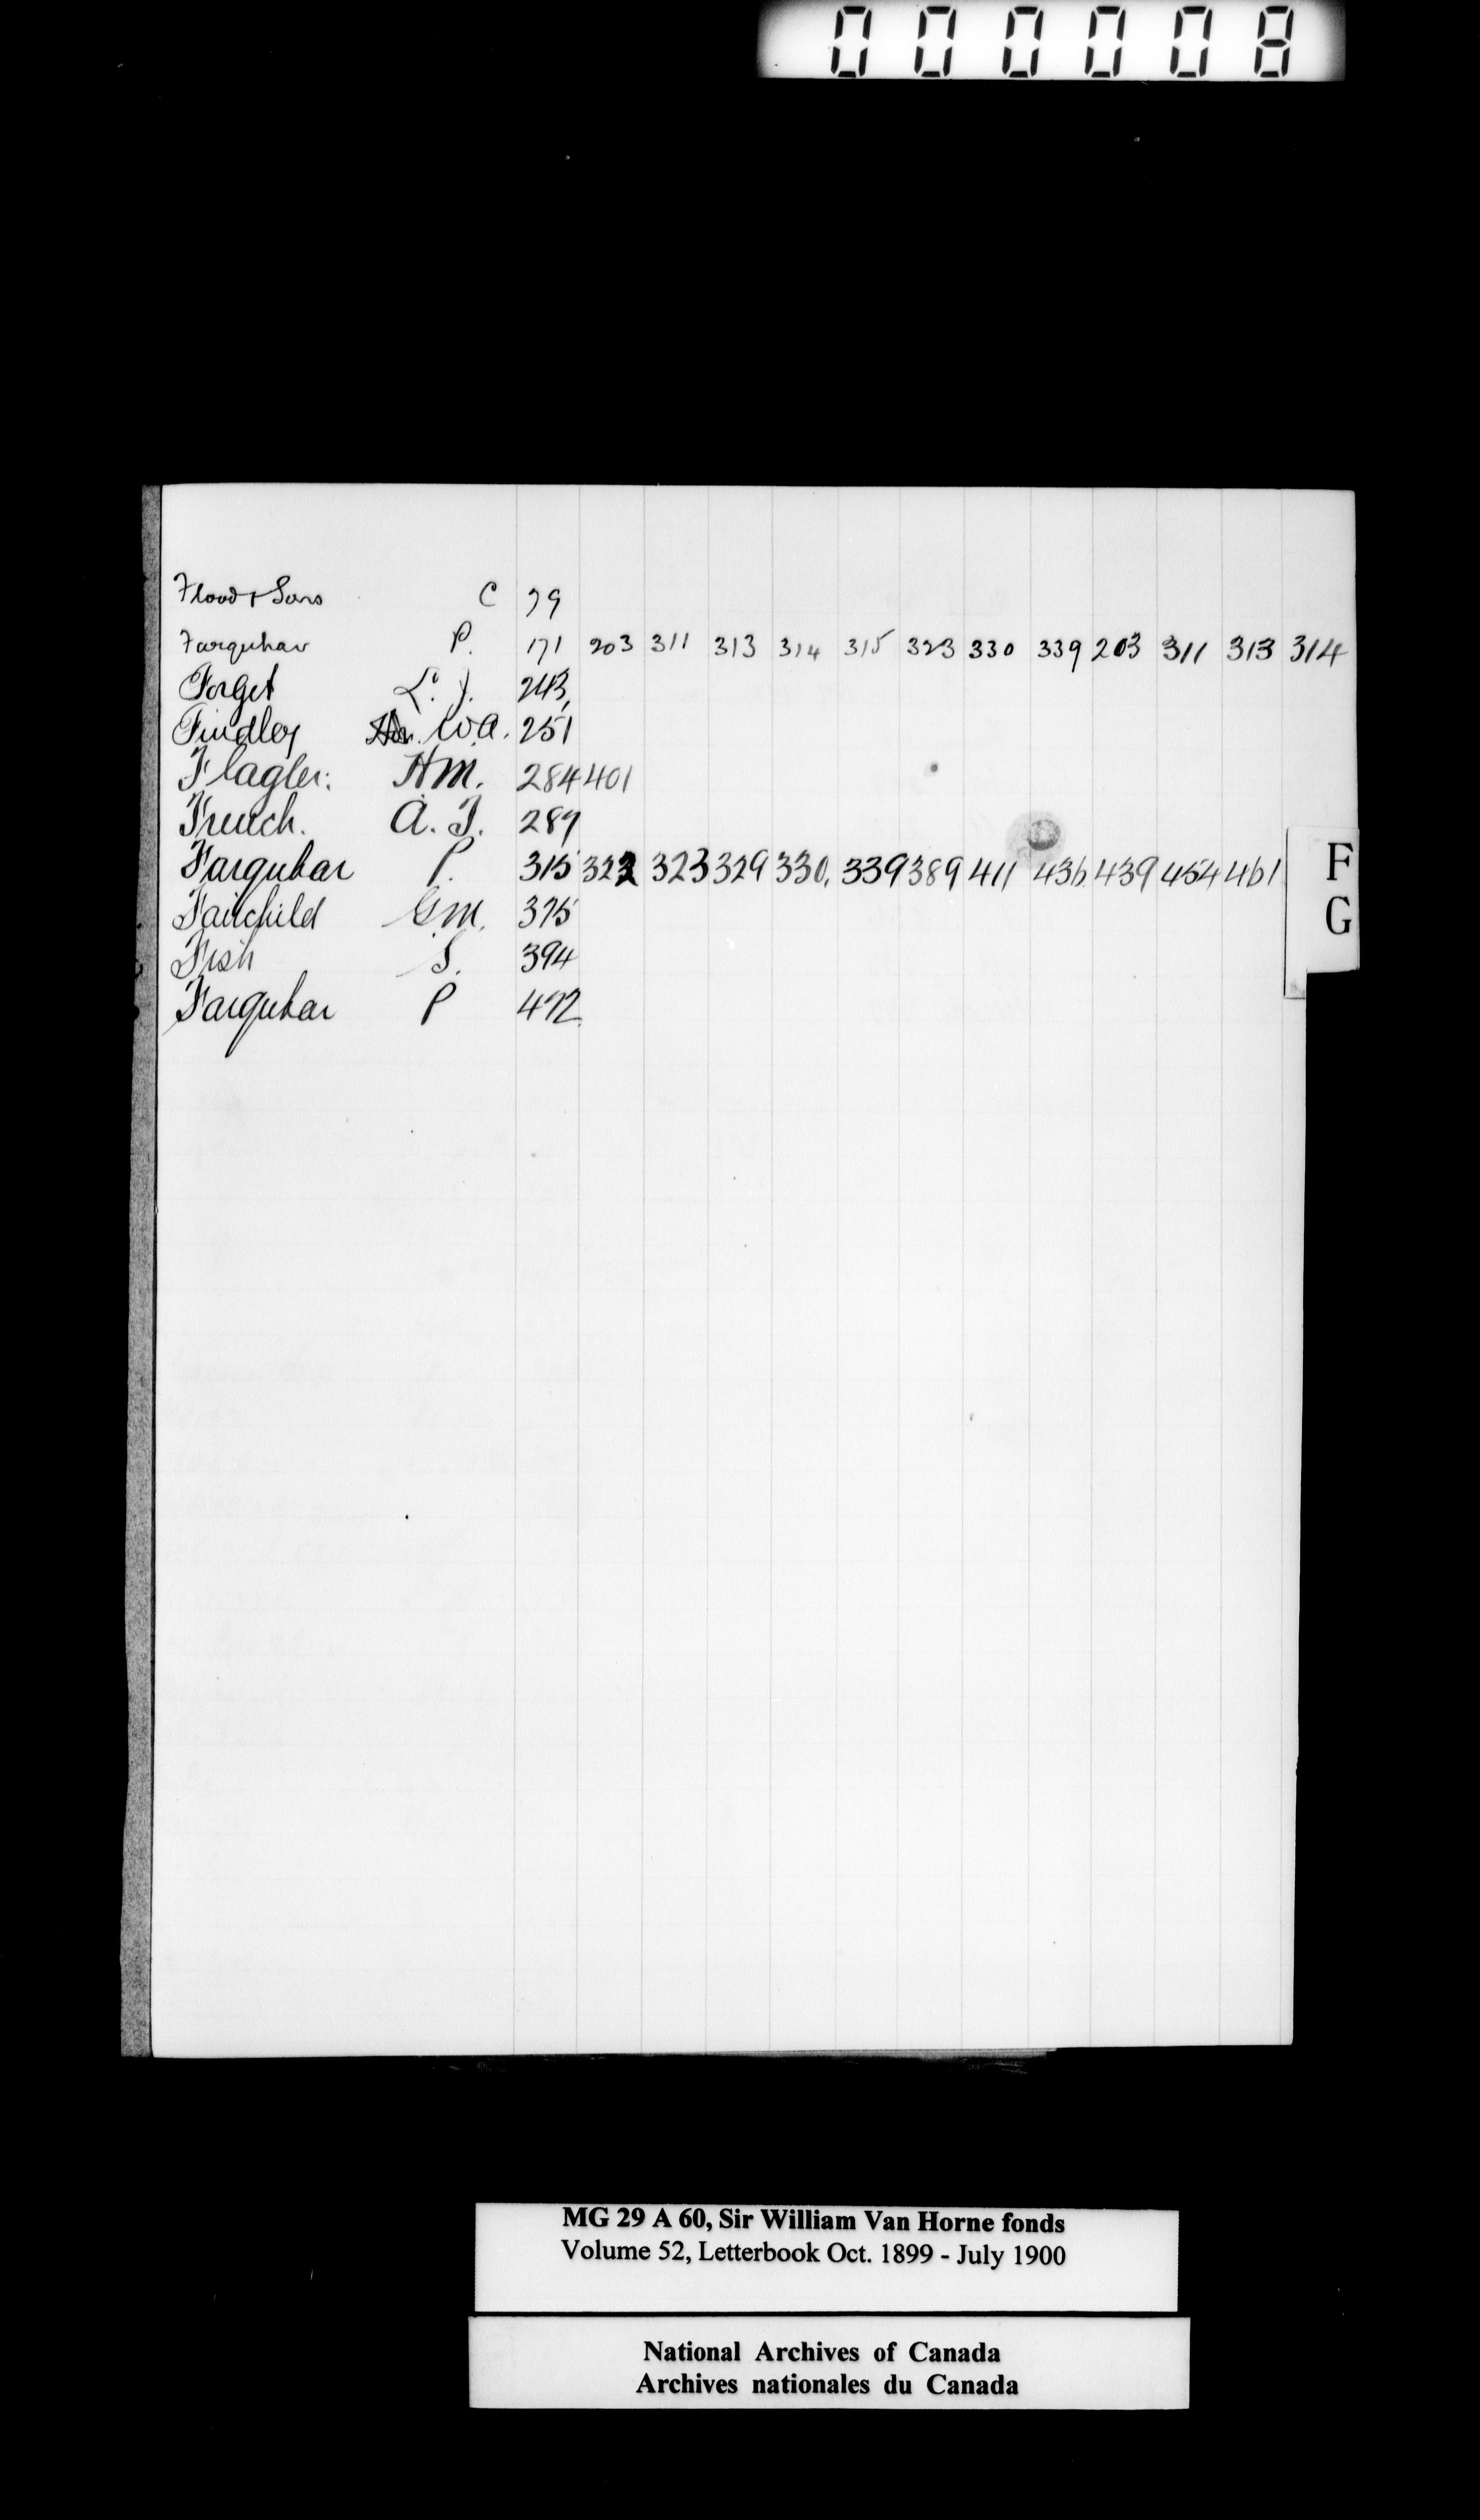 000008
Flood & Sons C 79
Farquhar P. 171 203 311 313 314 315 323 330 339 203 311 313 314
Forget L. J. 243,
Findley W.A. 251
Flagler. H.M. 284 401
French. A. T. 289
Farquhar P. 315 322 323 329 330, 339 389 411 436 439 454 461
Fairchild G.M. 375
Fish S. 394
Farquhar P 472
F
G
MG 29 A 60, Sir William Van Horne fonds
Volume 52, Letterbook Oct. 1899 - July 1900
National Archives of Canada
Archives nationales du Canada